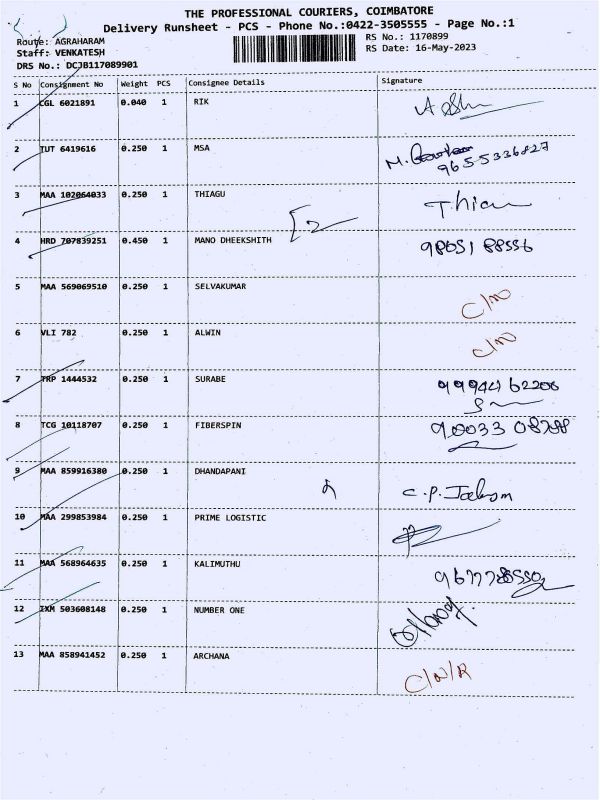 THE PROFESSIONAL COURIERS, COIMBATORE
Delivery Runsheet - PCS - Phone No.:0422-3505555 - Page No.:1
Route: AGRAHARAM
RS No.: 1170899
Staff: VENKATESH
RS Date: 16-May-2023
DRS No.: DCJB117089901
S No Consignment No Weight PCS Consignee Details Signature
1 CGL 6021891 0.040 1 RIK
2 TUT 6419616 0.250 1 MSA M.
9655336827
3 MAA 102064033 0.250 1 THIAGU Thiau
4 HRD 707839251 0.450 1 MANO DHEEKSHITH 98651 88556
5 MAA 569069510 0.250 1 SELVAKUMAR C/NO
6 VLI 782 0.250 1 ALWIN C/NO
7 TRP 1444532 0.250 1 SURABE 9994462206
8 TCG 10118707 0.250 1 FIBERSPIN 90033 08788
9 MAA 859916380 0.250 1 DHANDAPANI C.P.
10 MAA 299853984 0.250 1 PRIME LOGISTIC
11 MAA 568964635 0.250 1 KALIMUTHU
12 IXM 503608148 0.250 1 NUMBER ONE
13 MAA 858941452 0.250 1 ARCHANA C/N/R